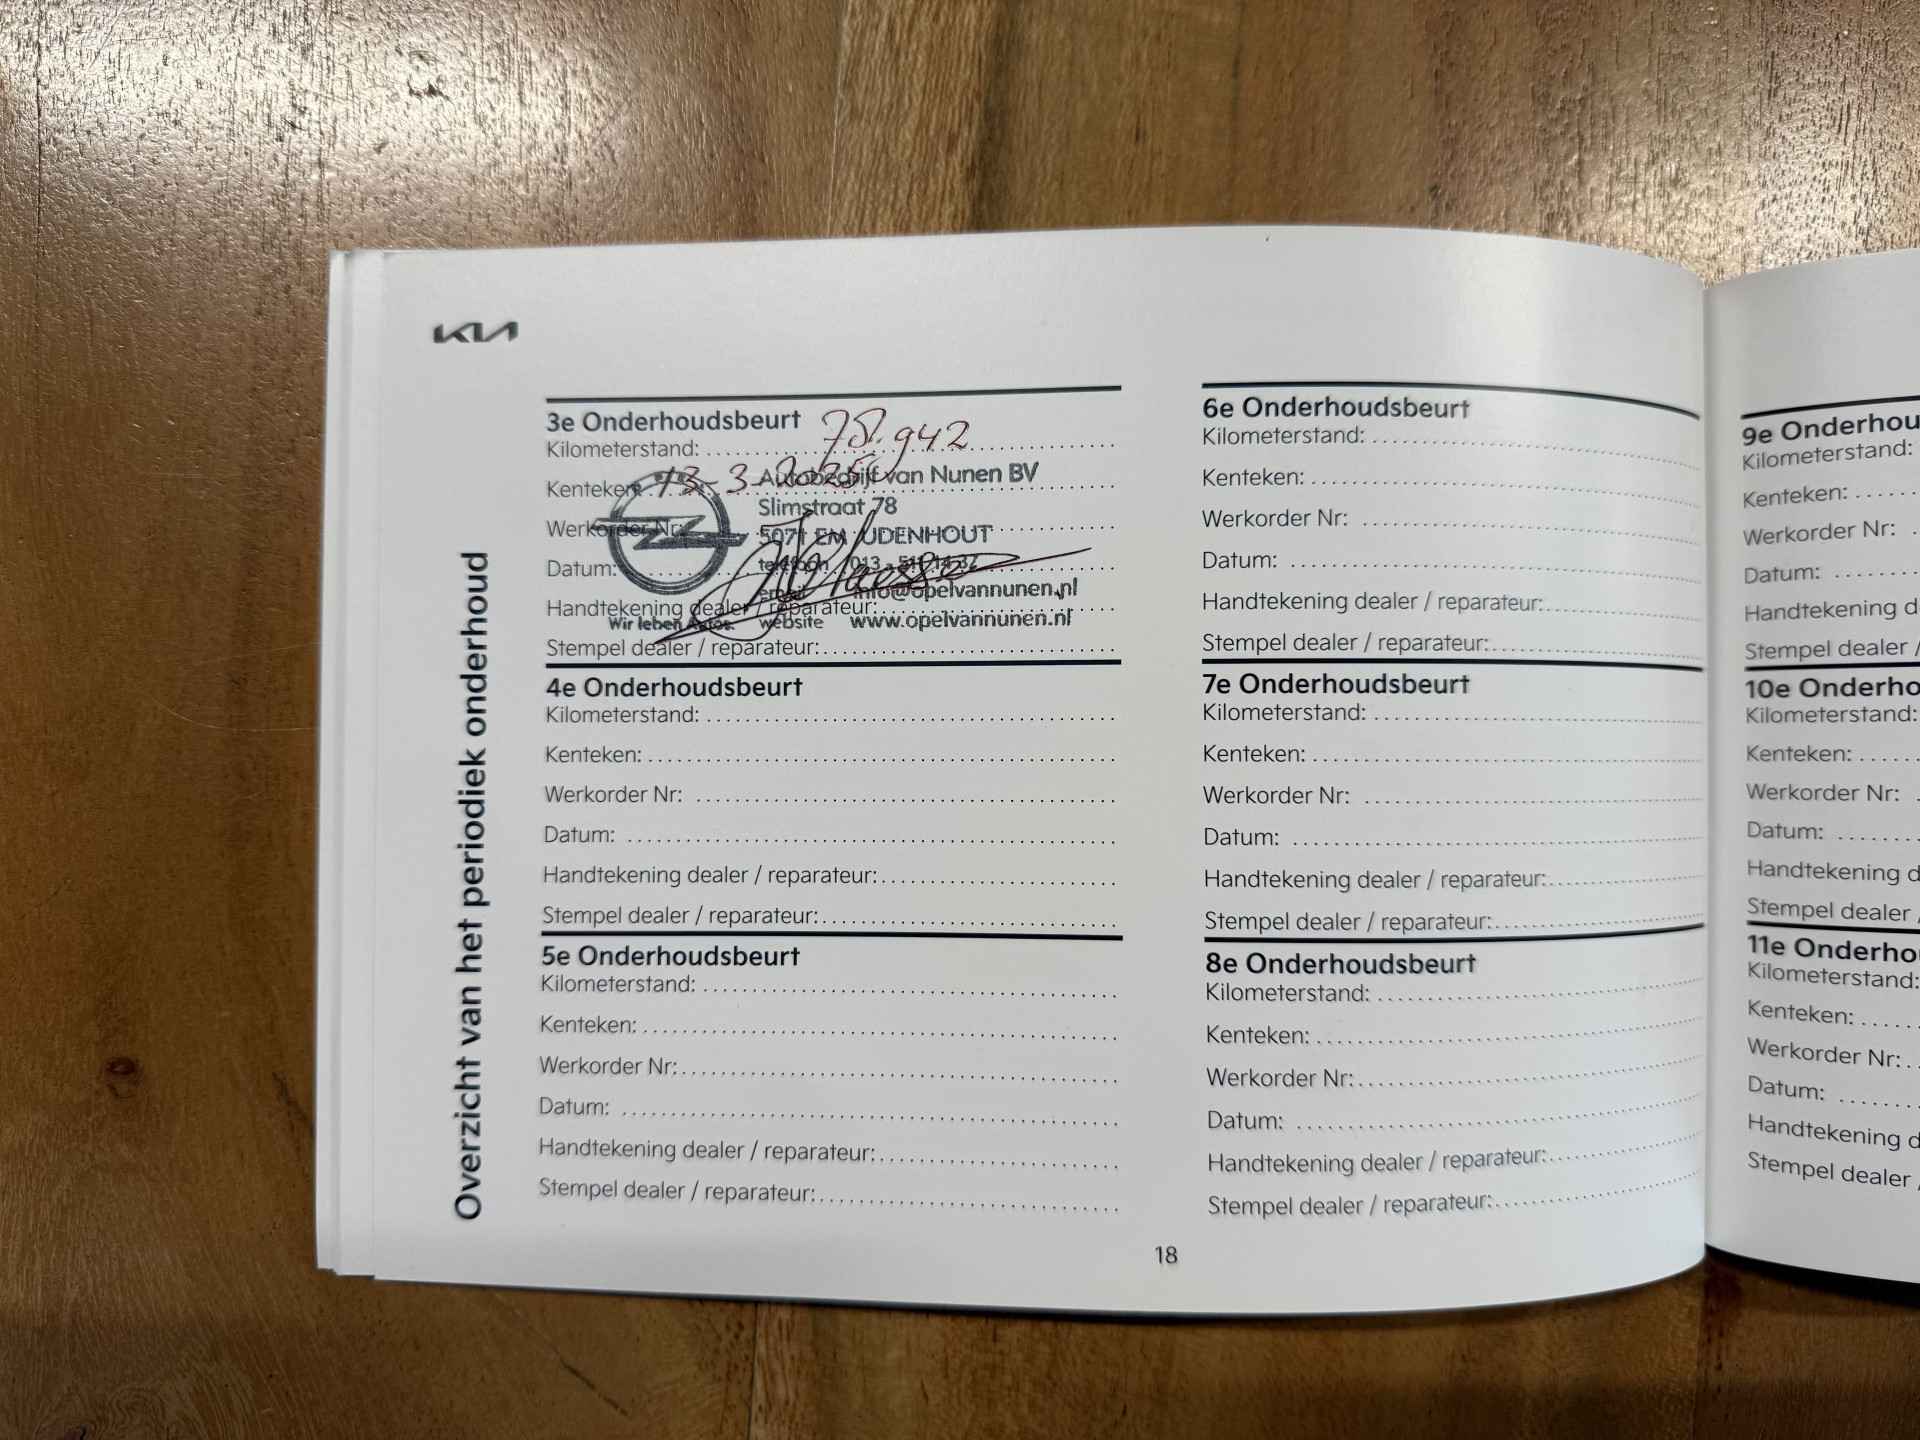 KIA
Overzicht van het periodiek onderhoud
3e Onderhoudsbeurt
Kilometerstand: 78.942
Kenteken: 13-3-2025
Werkorder Nr:
Datum:
Handtekening dealer / reparateur:
Stempel dealer / reparateur:
Autobedrijf van Nunen BV
Slimstraat 78
5071 EM UDENHOUT
telefoon 013 - 511 14 32
email info@opelvannunen.nl
Wir leben Autos. website www.opelvannunen.nl
4e Onderhoudsbeurt
Kilometerstand:
Kenteken:
Werkorder Nr:
Datum:
Handtekening dealer / reparateur:
Stempel dealer / reparateur:
5e Onderhoudsbeurt
Kilometerstand:
Kenteken:
Werkorder Nr:
Datum:
Handtekening dealer / reparateur:
Stempel dealer / reparateur:
6e Onderhoudsbeurt
Kilometerstand:
Kenteken:
Werkorder Nr:
Datum:
Handtekening dealer / reparateur:
Stempel dealer / reparateur:
7e Onderhoudsbeurt
Kilometerstand:
Kenteken:
Werkorder Nr:
Datum:
Handtekening dealer / reparateur:
Stempel dealer / reparateur:
8e Onderhoudsbeurt
Kilometerstand:
Kenteken:
Werkorder Nr:
Datum:
Handtekening dealer / reparateur:
Stempel dealer / reparateur:
18
9e Onderhou
Kilometerstand:
Kenteken:
Werkorder Nr:
Datum:
Handtekening d
Stempel dealer /
10e Onderho
Kilometerstand:
Kenteken:
Werkorder Nr:
Datum:
Handtekening d
Stempel dealer /
11e Onderho
Kilometerstand:
Kenteken:
Werkorder Nr:
Datum:
Handtekening d
Stempel dealer /